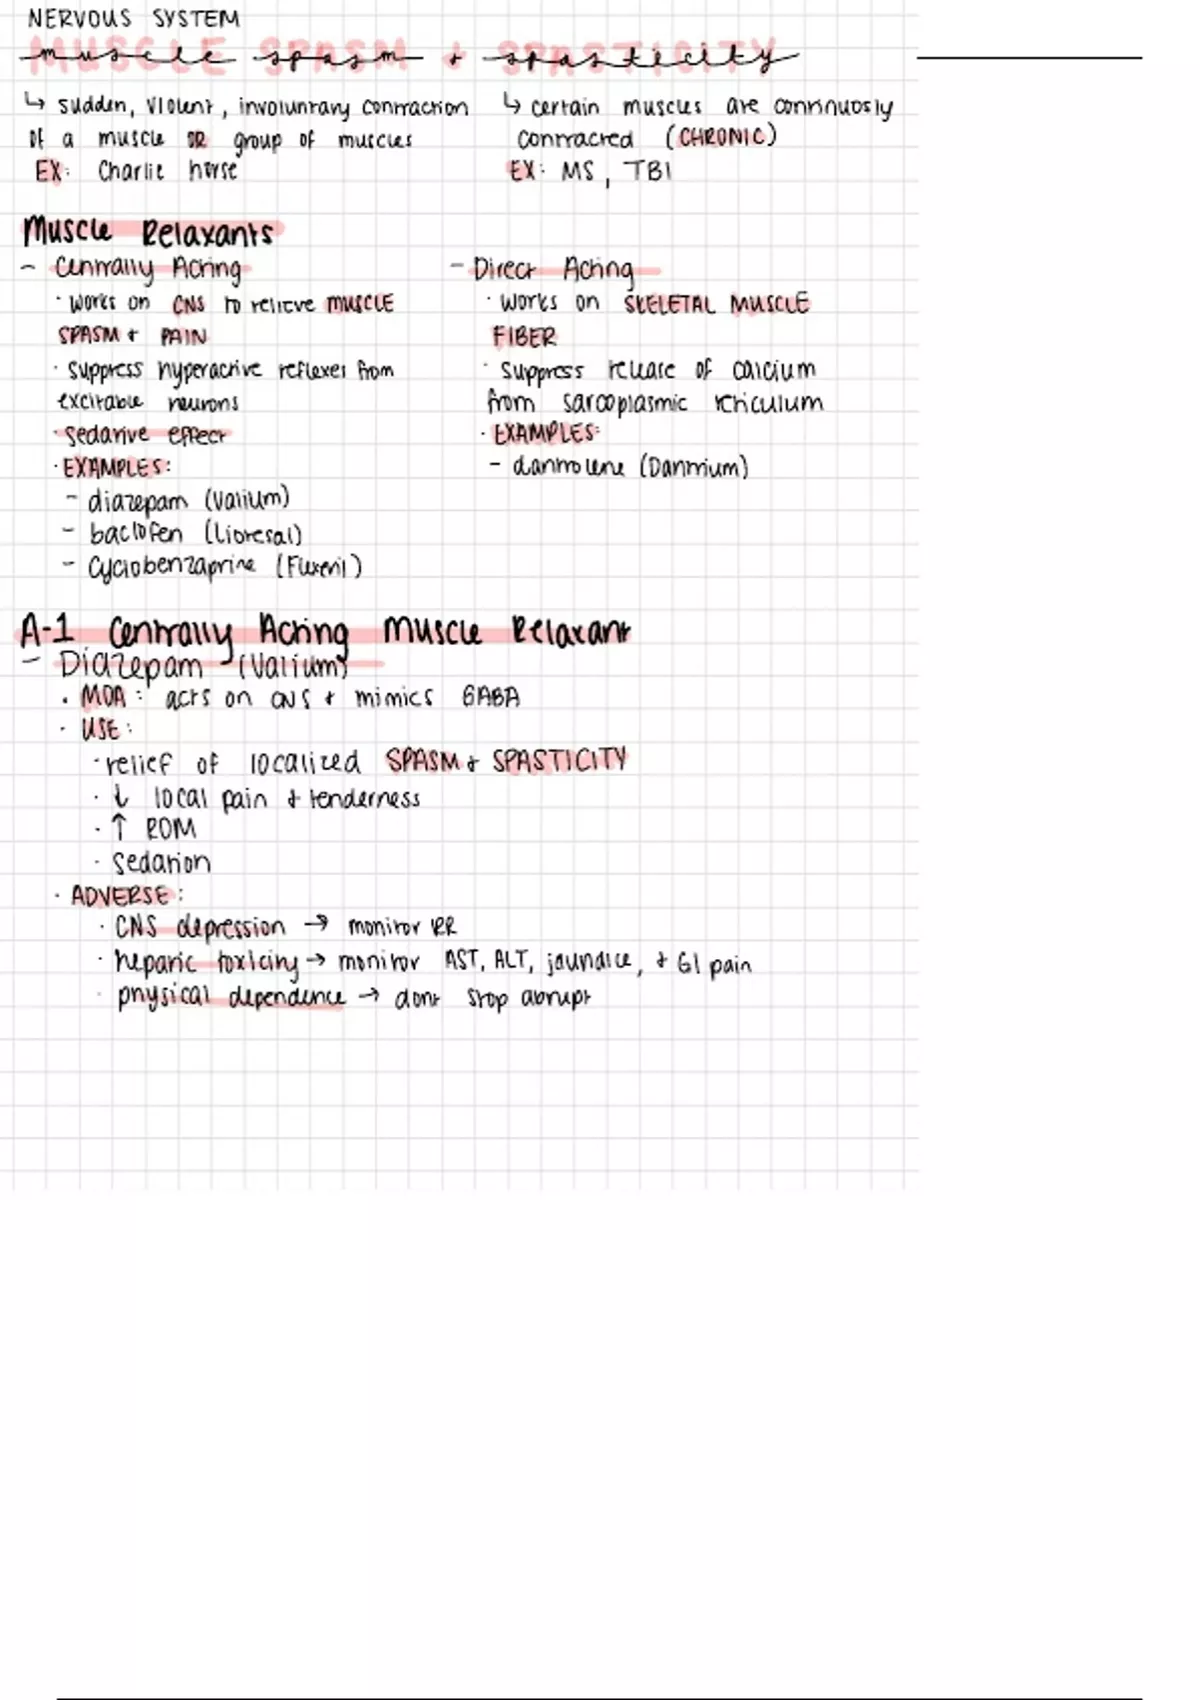 NERVOUS SYSTEM
MUSCLE SPASM + SPASTICITY
muscle spasm + spasticity
↳ sudden, violent, involuntary contraction
of a muscle OR group of muscles
EX: Charlie horse
↳ certain muscles are continuosly
contracted (CHRONIC)
EX: MS, TBI
Muscle Relaxants
- Centrally Acting
· works on CNS to relieve MUSCLE
SPASM + PAIN
· suppress hyperactive reflexes from
excitable neurons
· sedative effect
· EXAMPLES:
- diazepam (Valium)
- baclofen (Lioresal)
- cyclobenzaprine (Flexeril)
- Direct Acting
· works on SKELETAL MUSCLE
FIBER
· suppress release of calcium
from sarcoplasmic reticulum
· EXAMPLES:
- dantrolene (Dantrium)
A-1 Centrally Acting Muscle Relaxant
- Diazepam (Valium)
· MOA: acts on CNS + mimics GABA
· USE:
· relief of localized SPASM + SPASTICITY
· ↓ local pain + tenderness
· ↑ ROM
· sedation
· ADVERSE:
· CNS depression → monitor RR
· hepatic toxicity → monitor AST, ALT, jaundice, + GI pain
· physical dependence → dont stop abrupt